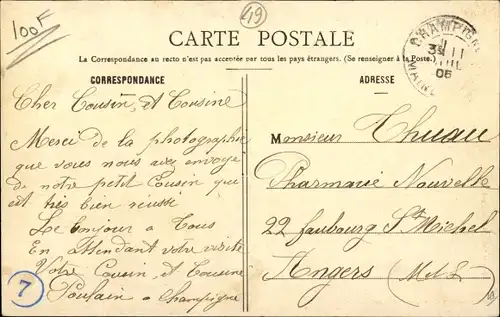 100F
49
CARTE POSTALE
La Correspondance au recto n'est pas acceptée par tous les pays étrangers. (Se renseigner à la Poste.)
CORRESPONDANCE
ADRESSE
CHAMPIGNÉ
11
06
MAINE
Cher Cousin, et Cousine
Merci de la photographie
que vous nous avez envoyé
de notre petit Cousin qui
est très bien réussi
Le bonjour a Tous
En Attendant votre visite
Votre Cousin, et Cousine
Poulain a Champigné
7
Monsieur Thuau
Pharmacie Nouvelle
22 faubourg St Michel
Angers (M&L)